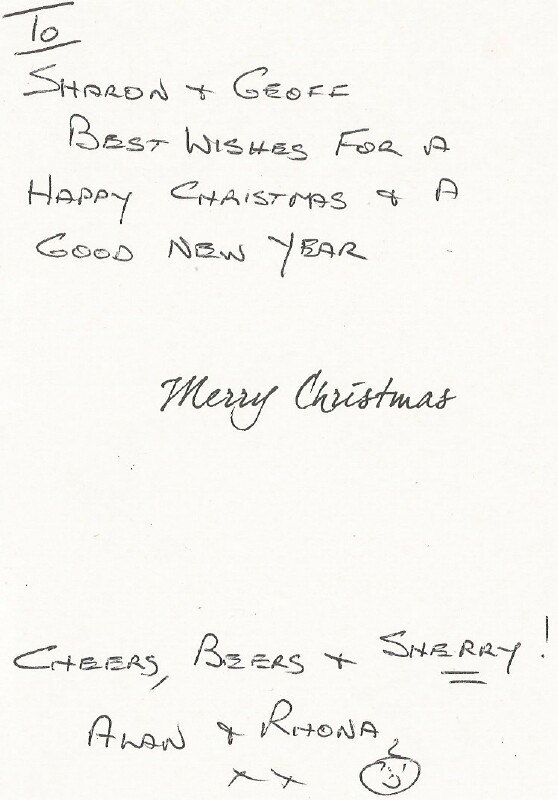 To
SHARON + GEOFF
BEST WISHES FOR A
HAPPY CHRISTMAS & A
GOOD NEW YEAR
Merry Christmas
CHEERS, BEERS + SHERRY!
ALAN & RHONA
xx